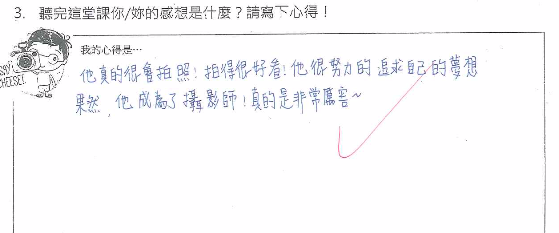 3. 聽完這堂課你/妳的感想是什麼？請寫下心得！
我的心得是…
他真的很會拍照！拍得很好看！他很努力的追求自己的夢想
果然，他成為了攝影師！真的是非常厲害~
SAY CHEESE!